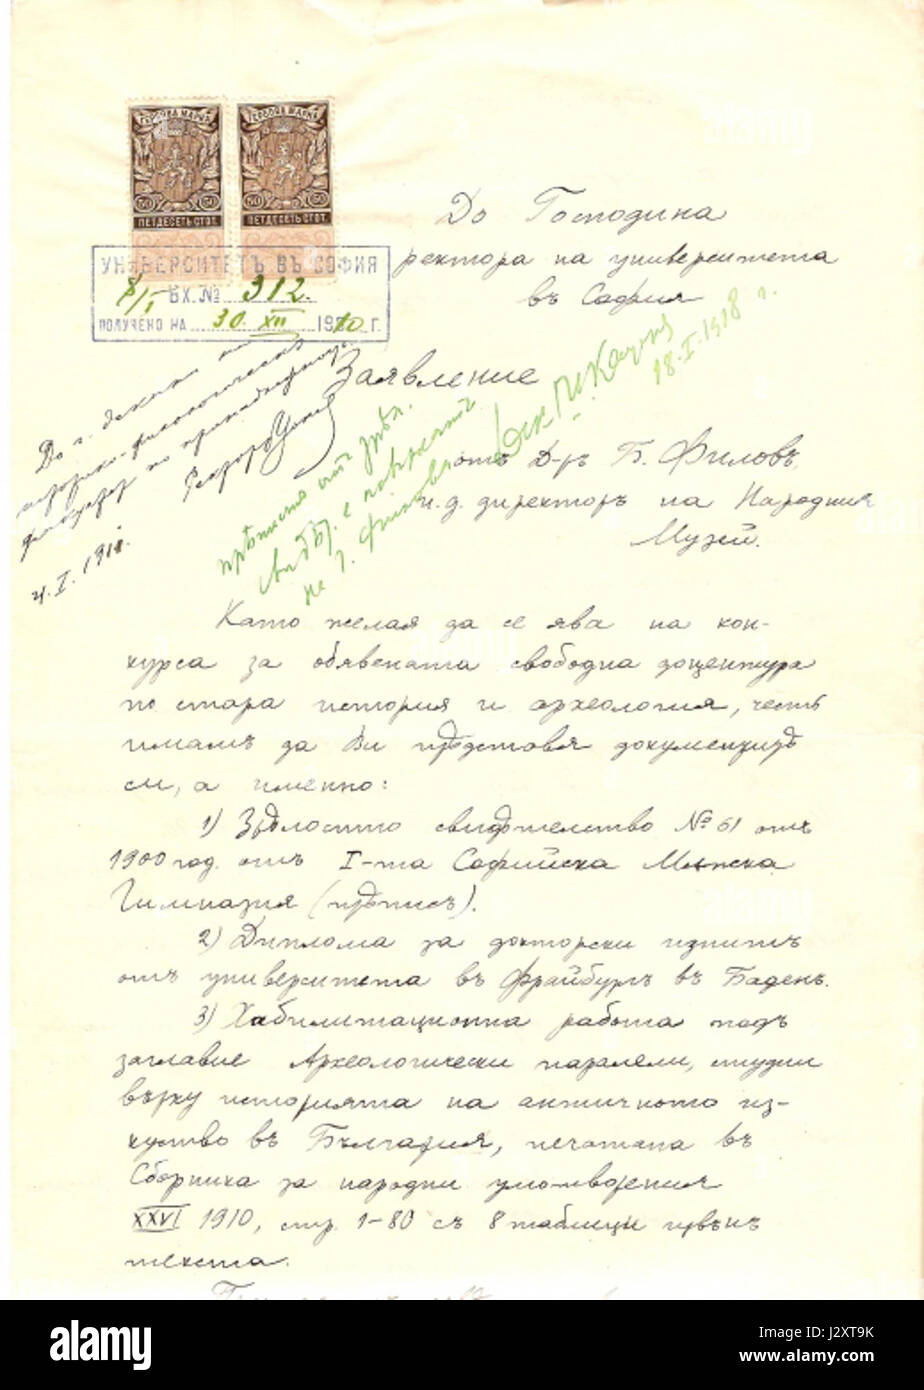 ГЕРБОВА МАРКА
ГЕРБОВА МАРКА
50 50
50 50
ПЕТДЕСЕТЬ СТОТ.
ПЕТДЕСЕТЬ СТОТ.
До Господина
ректора на университета
въ София
УНИВЕРСИТЕТЪ ВЪ СОФИЯ
ВХ. № 312.
ПОЛУЧЕНО НА 30. XII 1910 г.
Заявление
18. I. 1918 г.
До г. декана на
историко-филологическия
факултет по принадлежност
4. I. 191
прѣписъ отъ зрѣл.
свидѣт. е повърнатъ
на г. Филовъ
отъ Д-ръ Б. Филовъ,
и. д. директоръ на Народния
Музей.
Като желая да се явя на кон-
курса за обявената свободна доцентура
по стара история и археология, честь
имамъ да Ви прѣдставя документитѣ
си, а именно:
1) Зрѣлостно свидѣтелство № 61 отъ
1900 год. отъ I-та Софийска Мѫжска
Гимназия (прѣписъ).
2) Диплома за докторски изпитъ
отъ университета въ Фрайбургъ въ Баденъ.
3) Хабилитационна работа подъ
заглавие Археологически паралели, студии
върху историята на античното из-
куство въ България, печатана въ
Сборника за народни умотворения
XXVI 1910, стр. 1-80 съ 8 таблици извън
текста.
alamy
Image ID: J2XT9K
www.alamy.com